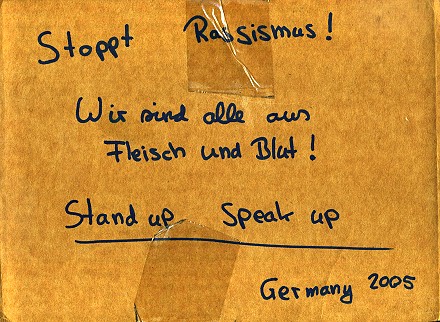 Stoppt Rassismus!
Wir sind alle aus
Fleisch und Blut!
Stand up Speak up
Germany 2005